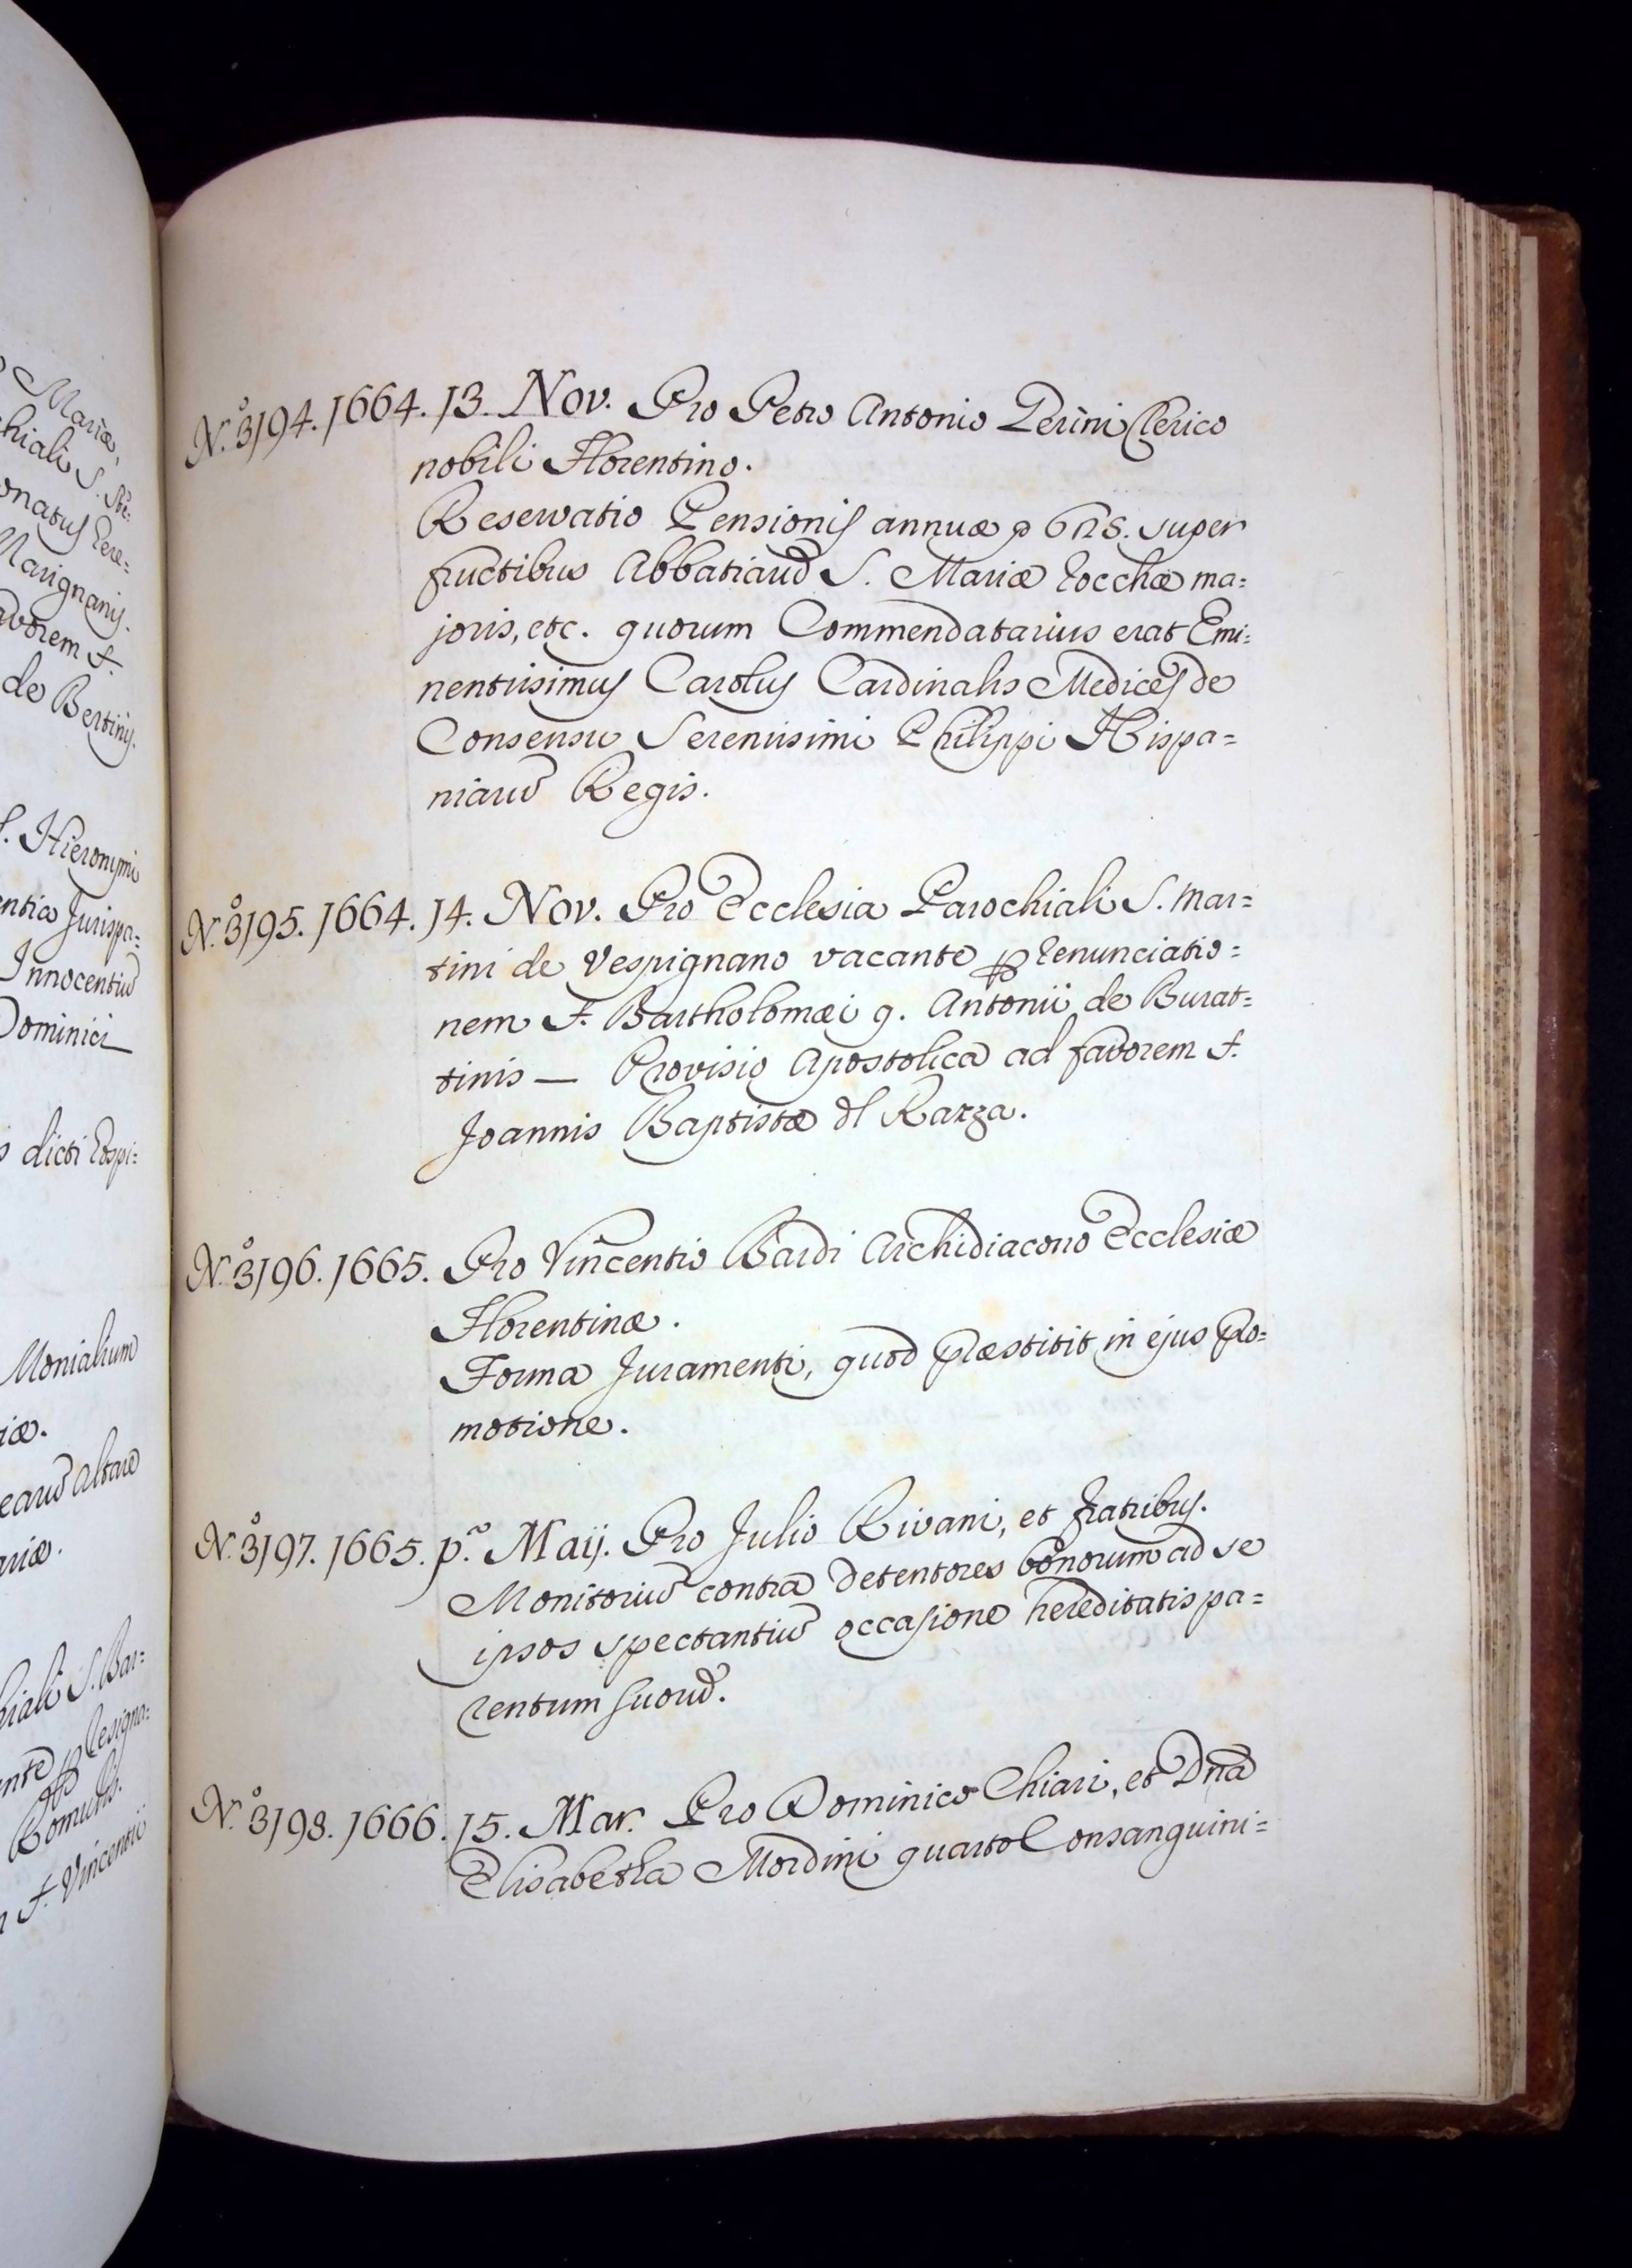 Mariæ,
chiali S. Ste:
onatus Rere=
Marignanis.
avorem F.
de Bertinis.
S. Hieronymi
entia Jurispa=
Innocentiū
Dominici
dicti Rospi:
Monialium
iæ.
earū altare
ariæ.
hiali S. Bar=
ante ꝑ Resigna=
Romulis.
F. Vincentii
N.º 3194. 1664. 13. Nov. Pro Petro Antonio Perini Clerico
nobili Florentino.
Reservatio Pensionis annuæ super
fructibus Abbatiarū S. Mariæ Rocchæ ma=
joris, etc. quorum Commendatarius erat Emi=
nentissimus Carolus Cardinalis Medices de
Consensu Serenissimi Philippi Hispa=
niarū Regis.
N.º 3195. 1664. 14. Nov. Pro Ecclesia Parochiali S. Mar=
tini de Vespignano vacante ꝑ renunciatio=
nem F. Bartholomæi q. Antonii de Burat=
tinis — Provisio Apostolica ad favorem F.
Joannis Baptistæ dl Razza.
N.º 3196. 1665. Pro Vincentio Bardi Archidiacono Ecclesiæ
Florentinæ.
Forma Juramenti, quod præstitit in ejus pro=
motione.
N.º 3197. 1665. p.º Maij. Pro Julio Rivani, et fratribus.
Monitoriū contra detentores bonorum ad se
ipsos spectantiū occasione hereditatis pa=
rentum suorū.
N.º 3198. 1666. 15. Mar. Pro Dominico Chiari, et Dnā
Elisabetha Mordini quarto Consanguini=